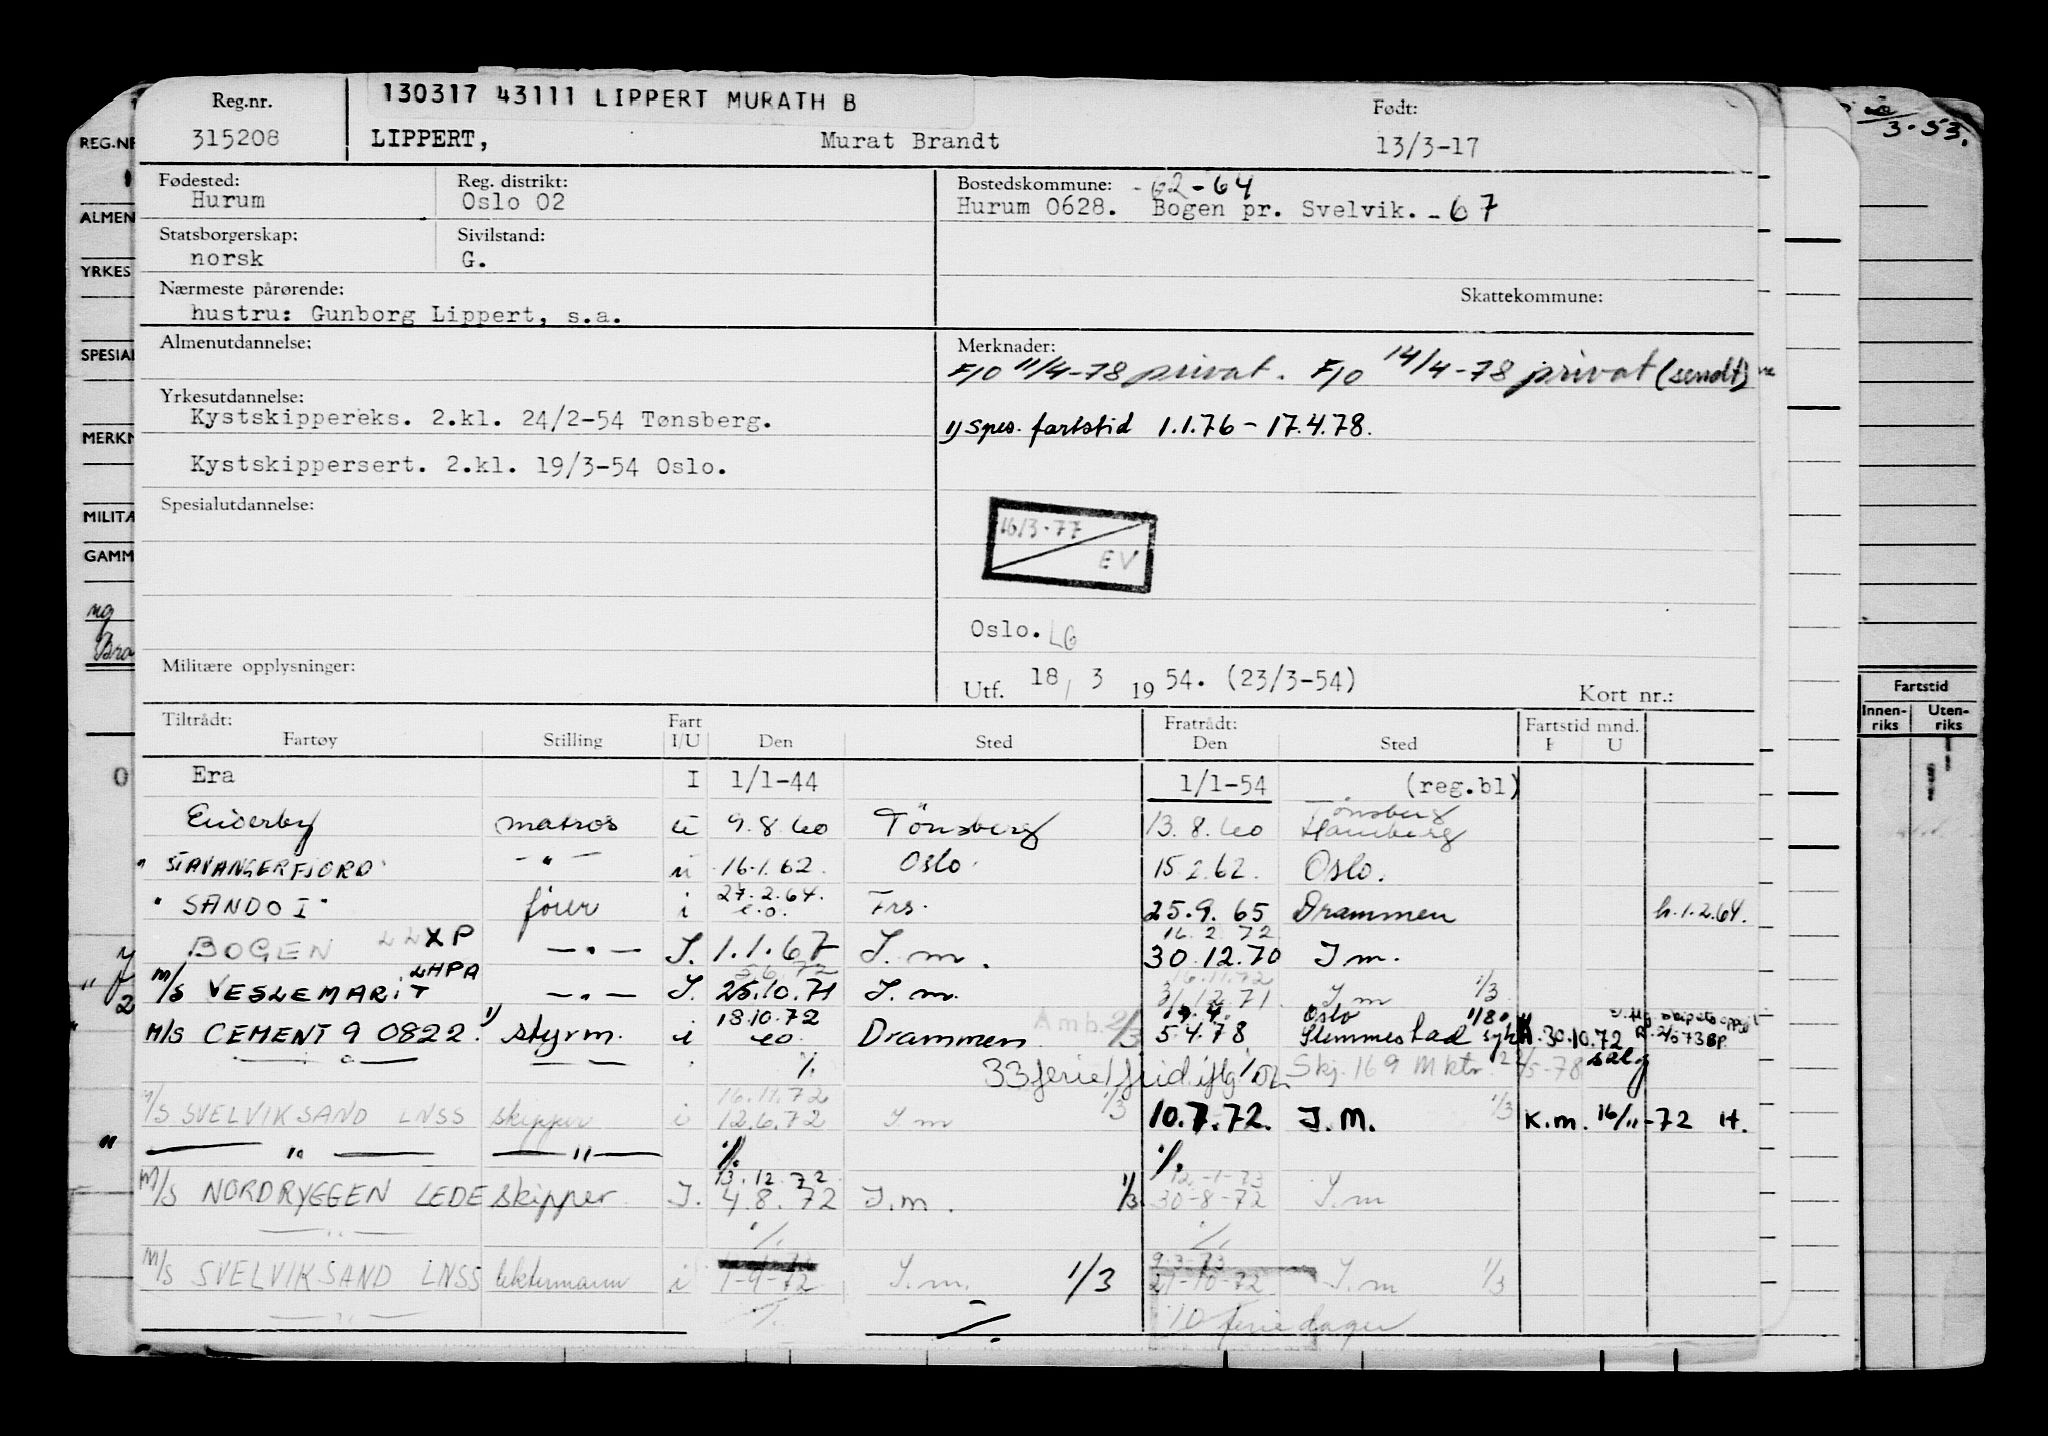 130317 43111 LIPPERT MURATH B
Reg.nr. Født:
315208 LIPPERT, Murat Brandt 13/3-17
3.53.
REG.NR
Fødested: Reg. distrikt: Bostedskommune: -62-64
Hurum Oslo 02 Hurum 0628. Bogen pr. Svelvik. -67
ALMEN
Statsborgerskap: Sivilstand:
norsk G.
YRKES
Nærmeste pårørende: Skattekommune:
hustru: Gunborg Lippert, s.a.
SPESIAL
Almenutdannelse: Merknader:
F/O 11/4-78 privat. F/O 14/4-78 privat (sendt)
Yrkesutdannelse:
Kystskippereks. 2.kl. 24/2-54 Tønsberg.
1) spes. fartstid 1.1.76 - 17.4.78.
MERKN
Kystskippersert. 2.kl. 19/3-54 Oslo.
Spesialutdannelse:
MILITÆ
16/3-77
EV
GAMM
Oslo. LG
Militære opplysninger:
Utf. 18/ 3 1954. (23/3-54) Kort nr.:
Fartstid
Innen-riks Uten-riks
Tiltrådt: Fart Fratrådt: Fartstid mnd.
Fartøy Stilling I/U Den Sted Den Sted I U
Era I 1/1-44 1/1-54 (reg.bl)
Tønsberg
Enderby matros u 9.8.60 Tönsberg 13.8.60 Hamburg
"STAVANGERFJORD" - " - u 16.1.62. Oslo 15.2.62. Oslo.
27.2.64.
"SANDO I" fører i e.o. Frs. 25.9.65 Drammen h.1.2.64.
16.2.72
BOGEN LLXP - " - I. 1.1.67 I.m. 30.12.70 I m.
16.11.72
M/S VESLEMARIT LHPA - " - I. 25.10.71 I.m. 31.12.71. I m 1/3
18.10.72 Oslo 1/80
M/S CEMENT 9 0822. 1) styrm. i eo. Drammen Amb. 2/3 5.4.78 Slemmestad 30.10.72
- " - - - ./. 33 ferie/frid. iflg. Skj. 169 Mktr. 22/5-78 salg
16.11.72
M/S SVELVIKSAND LNSS skipper i 12.6.72 I m 1/3 10.7.72. I.M. 1/3 K.m. 16/11-72 H.
- " - - " - ./. ./.
13.12.72 12-1-73
M/S NORDRYGGEN LEDE skipper I. 4.8.72 I.m. 1/3 30-8-72 I.m
- " - ./. ./.
9.3.73
M/S SVELVIKSAND LNSS lektermann i 1-9-72 I.m. 1/3 21-10-72 I.m 1/3
- " - ./. ./. 10 feriedager